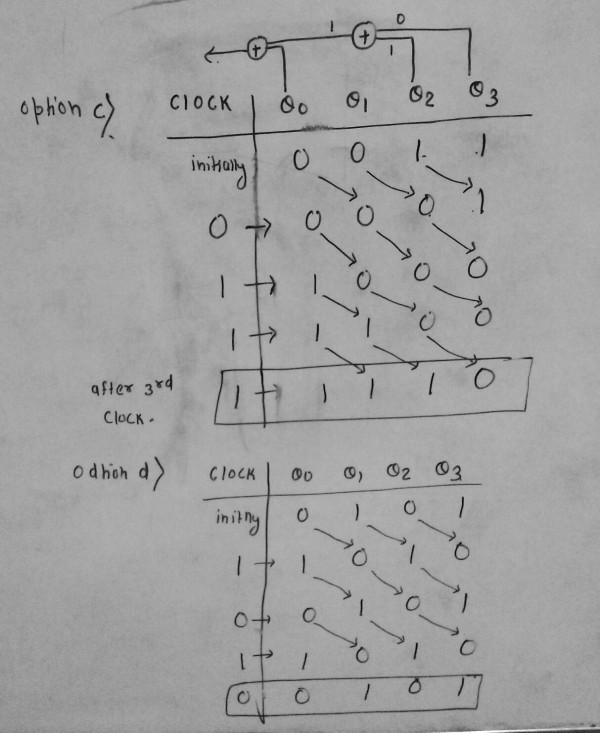 1 0
+ + 1
option c) CLOCK Q0 Q1 Q2 Q3
initially 0 0 1 1
0 → 0 0 0 1
1 → 1 0 0 0
1 → 1 1 0 0
after 3rd 1 → 1 1 1 0
clock.
Odhion d) CLOCK Q0 Q1 Q2 Q3
initny 0 1 0 1
1 → 1 0 1 0
0 → 0 1 0 1
1 → 1 0 1 0
0 0 1 0 1